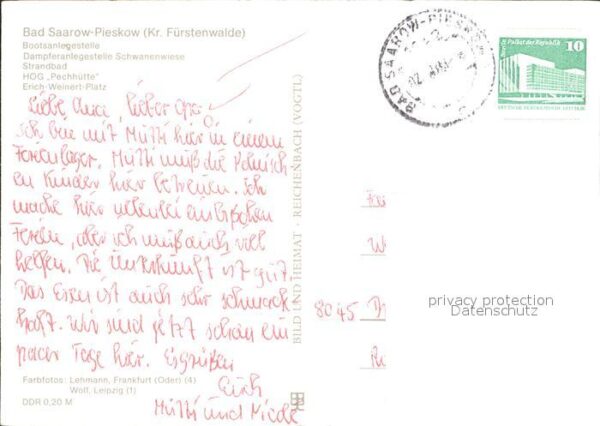 Bad Saarow-Pieskow (Kr. Fürstenwalde)
Bootsanlegestelle
Dampferanlegestelle Schwanenwiese
Strandbad
HOG „Pechhütte"
Erich-Weinert-Platz
Liebe Omi, lieber Opa,
ich bin mit Mutti hier in einem
Ferienlager. Mutti muß die Polnisch-
en Kinder hier betreuen. Ich
mache hier nebenbei ein bißchen
Ferien, aber ich muß auch viel
helfen. Die Unterkunft ist gut.
Das Essen ist auch sehr schmack-
haft. Wir sind jetzt schon ein
paar Tage hier. Es grüßen
Euch
Mutti und
Farbfotos: Lehmann, Frankfurt (Oder) (4)
Wolf, Leipzig (1)
DDR 0,20 M
BILD UND HEIMAT · REICHENBACH (VOGTL)
BAD SAAROW-PIESKOW
Palast der Republik
10
8045 D
privacy protection
Datenschutz